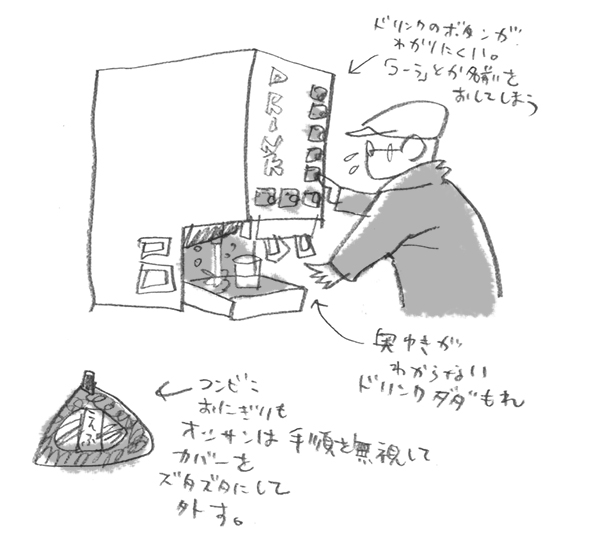 ドリンクのボタンが
わかりにくい。
「コーラ」とか名前を
おしてしまう
DRINK
奥ゆきが
わからない
ドリンクダダもれ
コンビニ
おにぎりも
オッサンは手順を無視して
カバーを
ズタズタにして
外す。